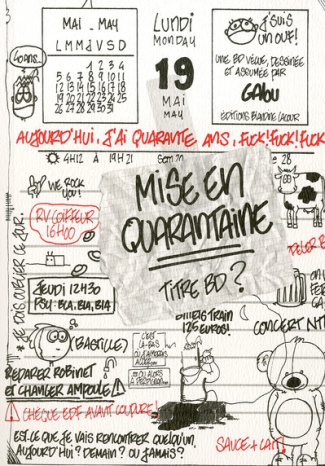 MAI_MAY
L M M J V S D
1 2 3 4
5 6 7 8 9 10 11
12 13 14 15 16 17 18
19 20 21 22 23 24 25
26 27 28 29 30 31
LUNDI
MONDAY
19
MAI
MAY
J'SUIS
UN OUF!
UNE BD VÉCUE, DESSINÉE
ET ASSUMÉE PAR
GABU
ÉDITIONS BLANDINE LACOUR
40 ANS..
AUJOURD'HUI, J'AI QUARANTE ANS, FUCK! FUCK! FUCK
4H12 À 19H21
28
WE ROCK
YOU!
RV COIFFEUR
16H00
MISE EN
QUARANTAINE
TITRE BD?
JEUDI 12H30
PSU: BLA, BLA, BLA
BILLETS TRAIN
126 EUROS!
CONCERT NTM
(BASTILLE)
C'EST
LÀ-BAS
RÉPARER ROBINET
ET CHANGER AMPOULE
CHÈQUE EDF AVANT COUPURE!
EST-CE QUE JE VAIS RENCONTRER QUELQU'UN,
AUJOURD'HUI? DEMAIN? OU JAMAIS?
SAUCE + LAIT!